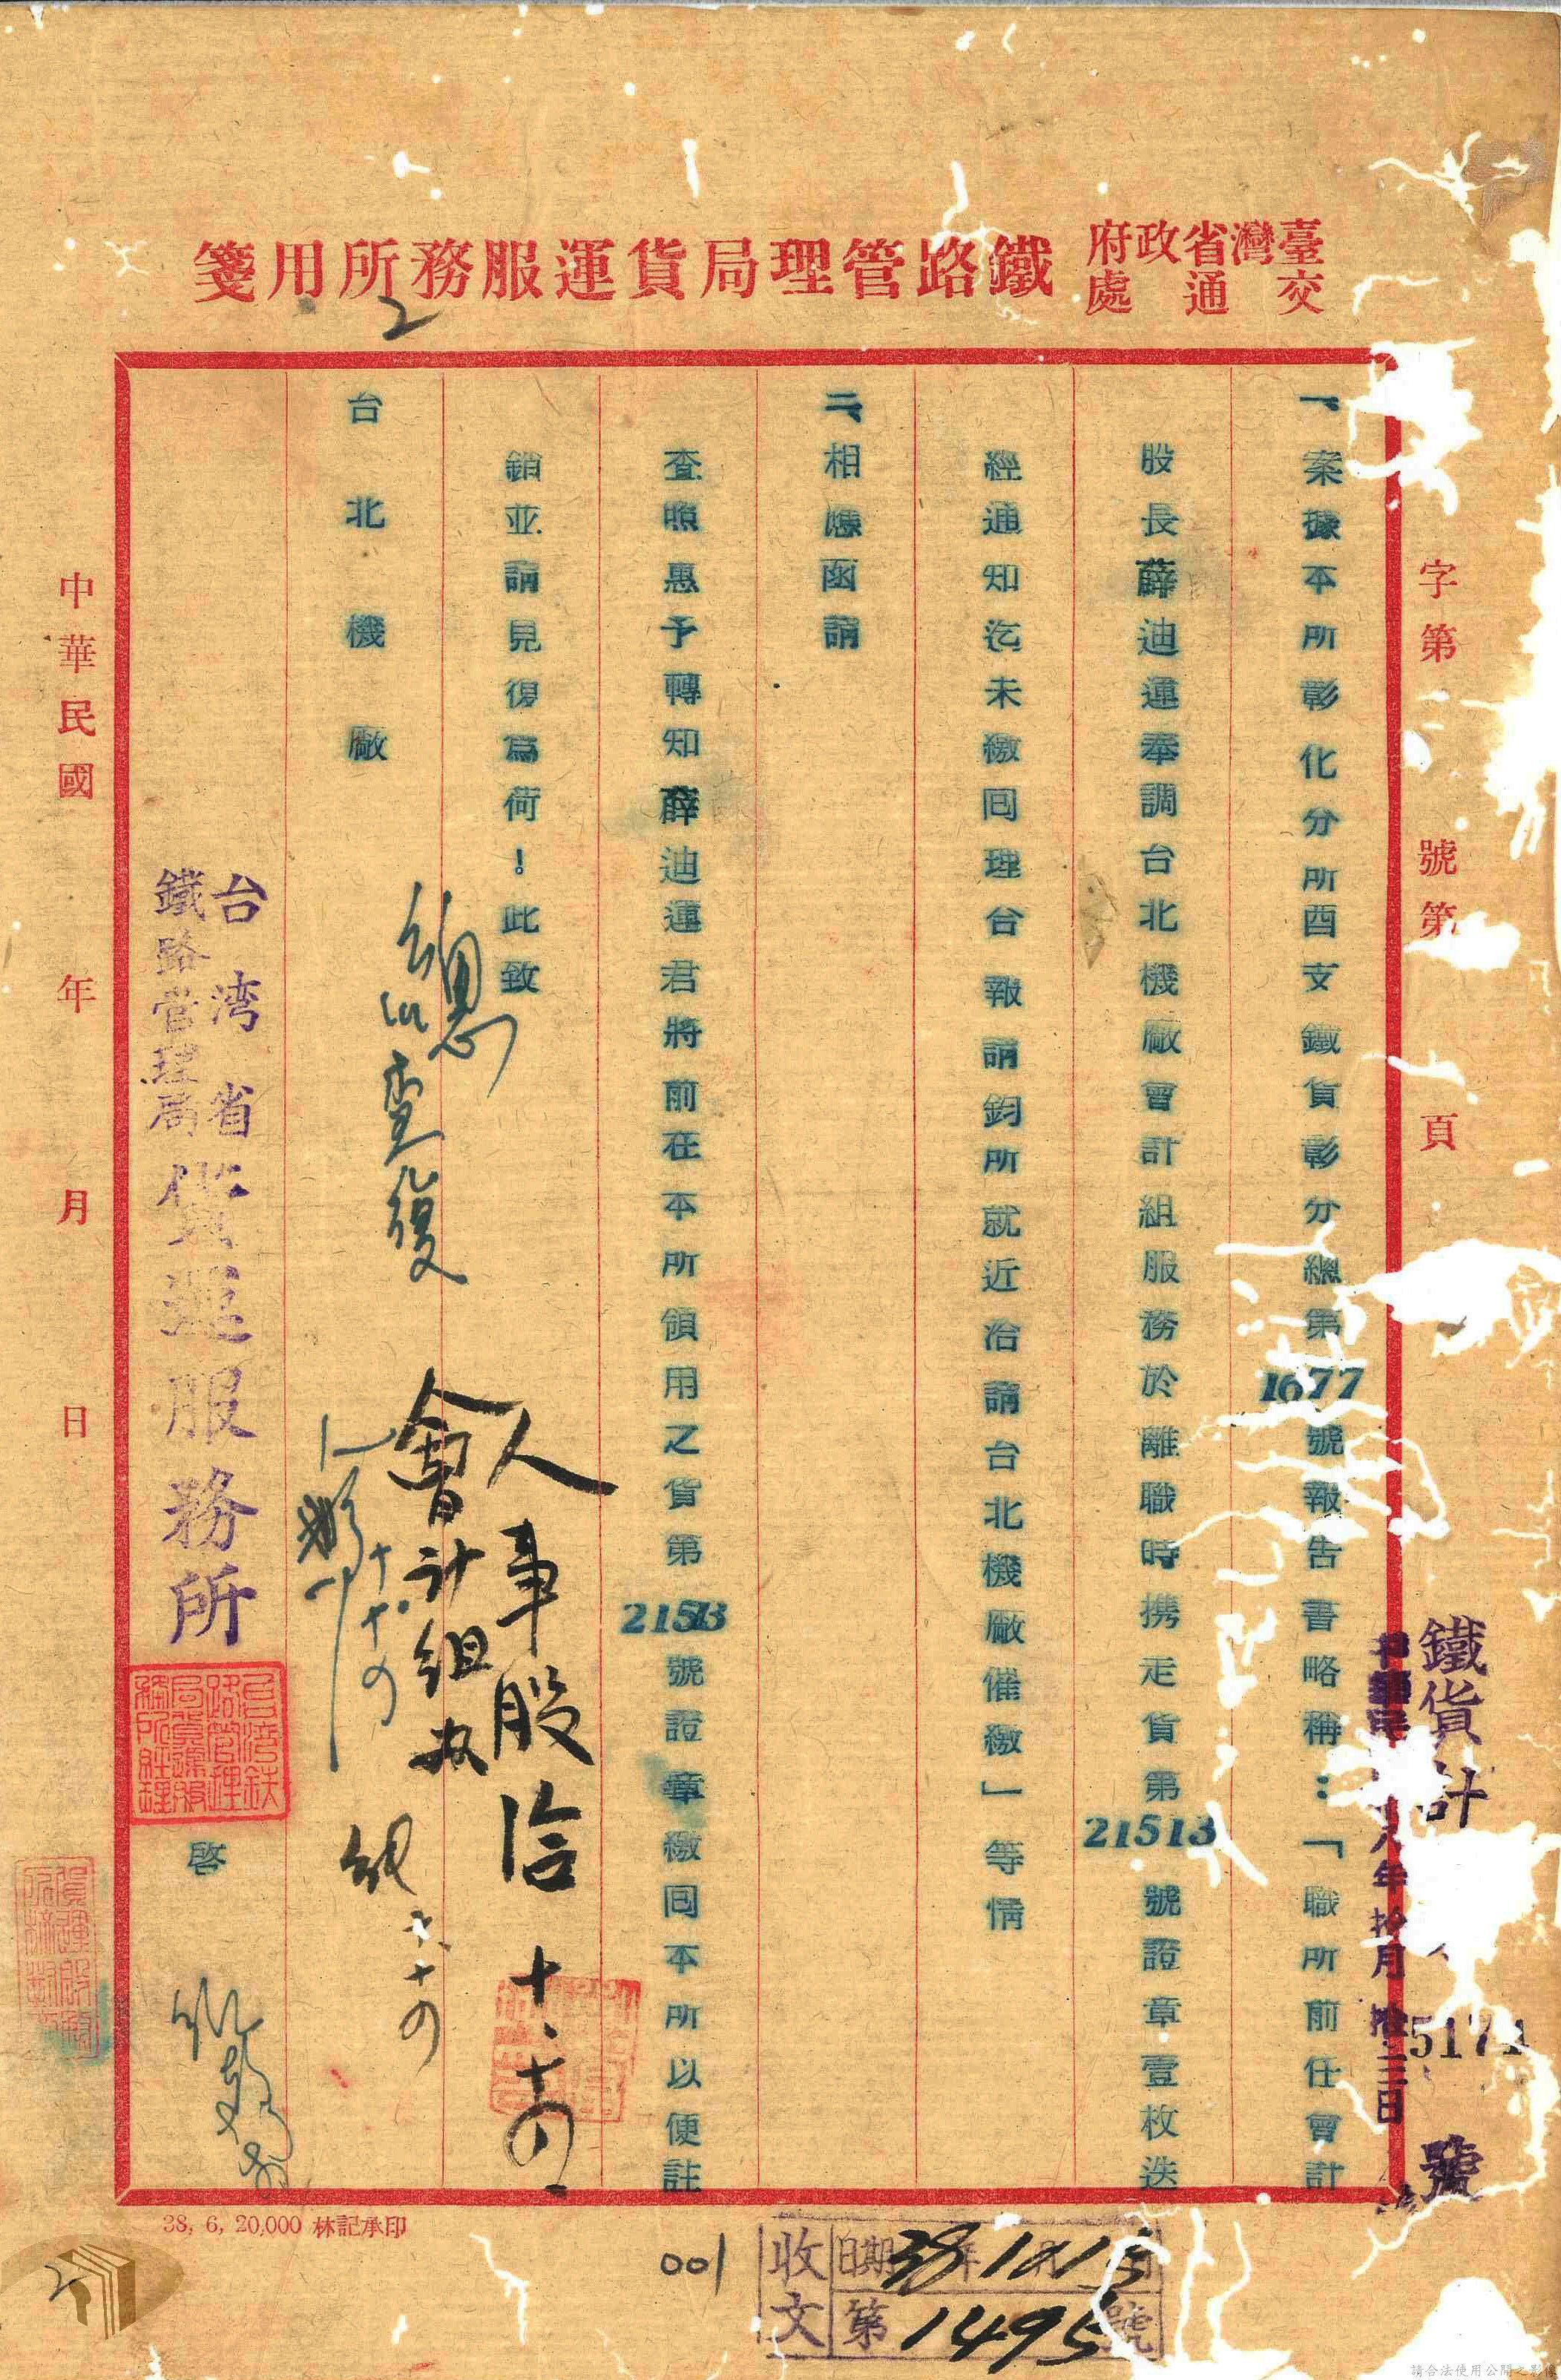 臺灣省政府
交通處
鐵路管理局貨運服務所用箋
字第 號第 頁
鐵貨計
5174
號
八年拾月拾三日
一、案據本所彰化分所酉支鐵貨彰分總第1677號報告書略稱：「職所前任會計
股長薛迪運奉調台北機廠會計組服務於離職時携走貨第21513號證章壹枚迭
經通知迄未繳回理合報請鈞所就近洽請台北機廠催繳」等情
二、相應函請
查照惠予轉知薛迪運君將前在本所領用之貨第21513號證章繳回本所以便註
銷並請見復為荷！此致
台北機廠
台湾省
鐵路管理局
貨運服務所
啓
查復
人事股洽 十、十四
會計組
中華民國 年 月 日
38, 6, 20,000 林記承印
001
收文
日期 38年10 15
第1495號
2
2
請合法使用公開之影